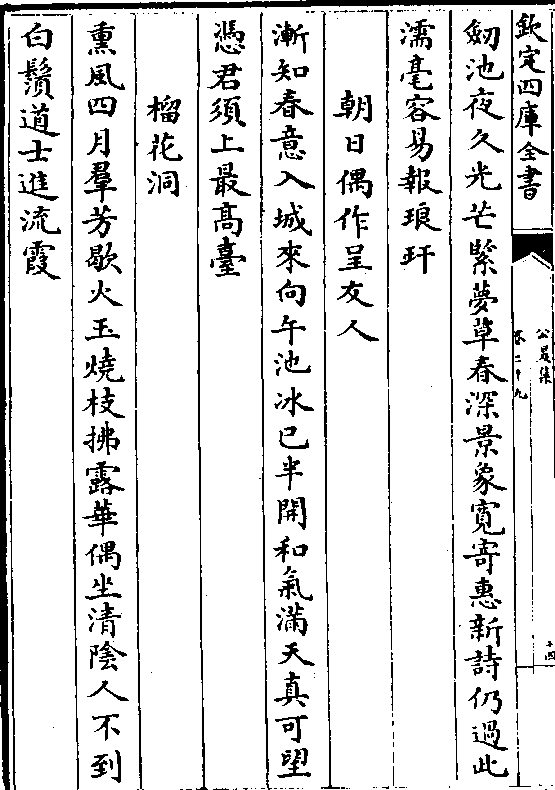 欽定四庫全書
公是集
卷二十九
十四
劒池夜久光芒緊夢草春深景象寛寄惠新詩仍過此
濡毫容易報琅玕
朝日偶作呈友人
漸知春意入城來向午池冰已半開和氣滿天真可望
憑君須上最髙臺
榴花洞
熏風四月羣芳歇火玉燒枝拂露華偶坐清陰人不到
白鬚道士進流霞